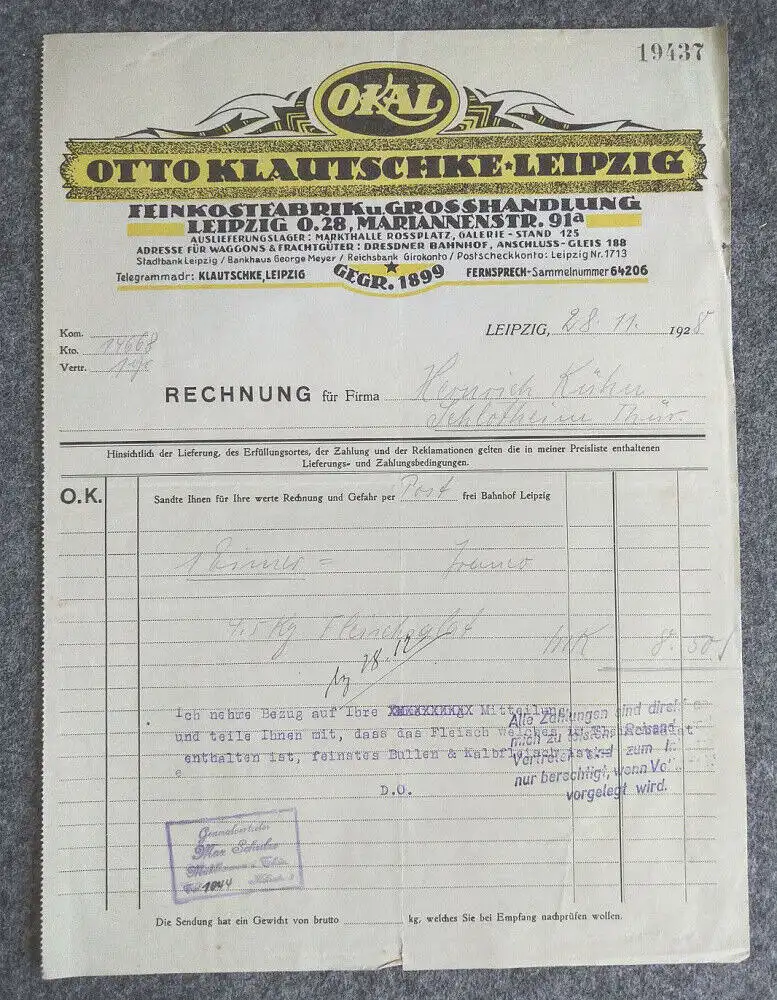 19437
OKAL
OTTO KLAUTSCHKE★LEIPZIG
FEINKOSTFABRIK u GROSSHANDLUNG
LEIPZIG O.28, MARIANNENSTR. 91a
AUSLIEFERUNGSLAGER: MARKTHALLE ROSSPLATZ, GALERIE - STAND 125
ADRESSE FÜR WAGGONS & FRACHTGÜTER: DRESDNER BAHNHOF, ANSCHLUSS-GLEIS 188
Stadtbank Leipzig / Bankhaus George Meyer / Reichsbank Girokonto / Postscheckkonto: Leipzig Nr. 1713
Telegrammadr: KLAUTSCHKE, LEIPZIG
GEGR. 1899
FERNSPRECH-Sammelnummer 64206
LEIPZIG, 28. 11. 1928
Kom.
Kto. 14668
Vertr.
RECHNUNG für Firma Heinrich
Schlotheim Thür.
Hinsichtlich der Lieferung, des Erfüllungsortes, der Zahlung und der Reklamationen gelten die in meiner Preisliste enthaltenen
Lieferungs- und Zahlungsbedingungen.
O.K.
Sandte Ihnen für Ihre werte Rechnung und Gefahr per Post frei Bahnhof Leipzig
1 Eimer = franco
4.5 Kg Fleischsalat MK 8.50
28.12
Ich nehme Bezug auf Ihre Mitteilung
und teile Ihnen mit, dass das Fleisch welches im Fleischsalat
enthalten ist, feinstes Bullen & Kalbfleisch ist.
D.O.
Alle Zahlungen sind direkt
mich zu leisten.
Vertreter sind zum
nur berechtigt, wenn
vorgelegt wird.
Generalvertreter
Max
1044
Die Sendung hat ein Gewicht von brutto kg, welches Sie bei Empfang nachprüfen wollen.